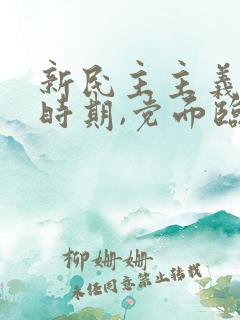 新民主主义
时期,党面临
柳姗姗
未经同意禁止转载